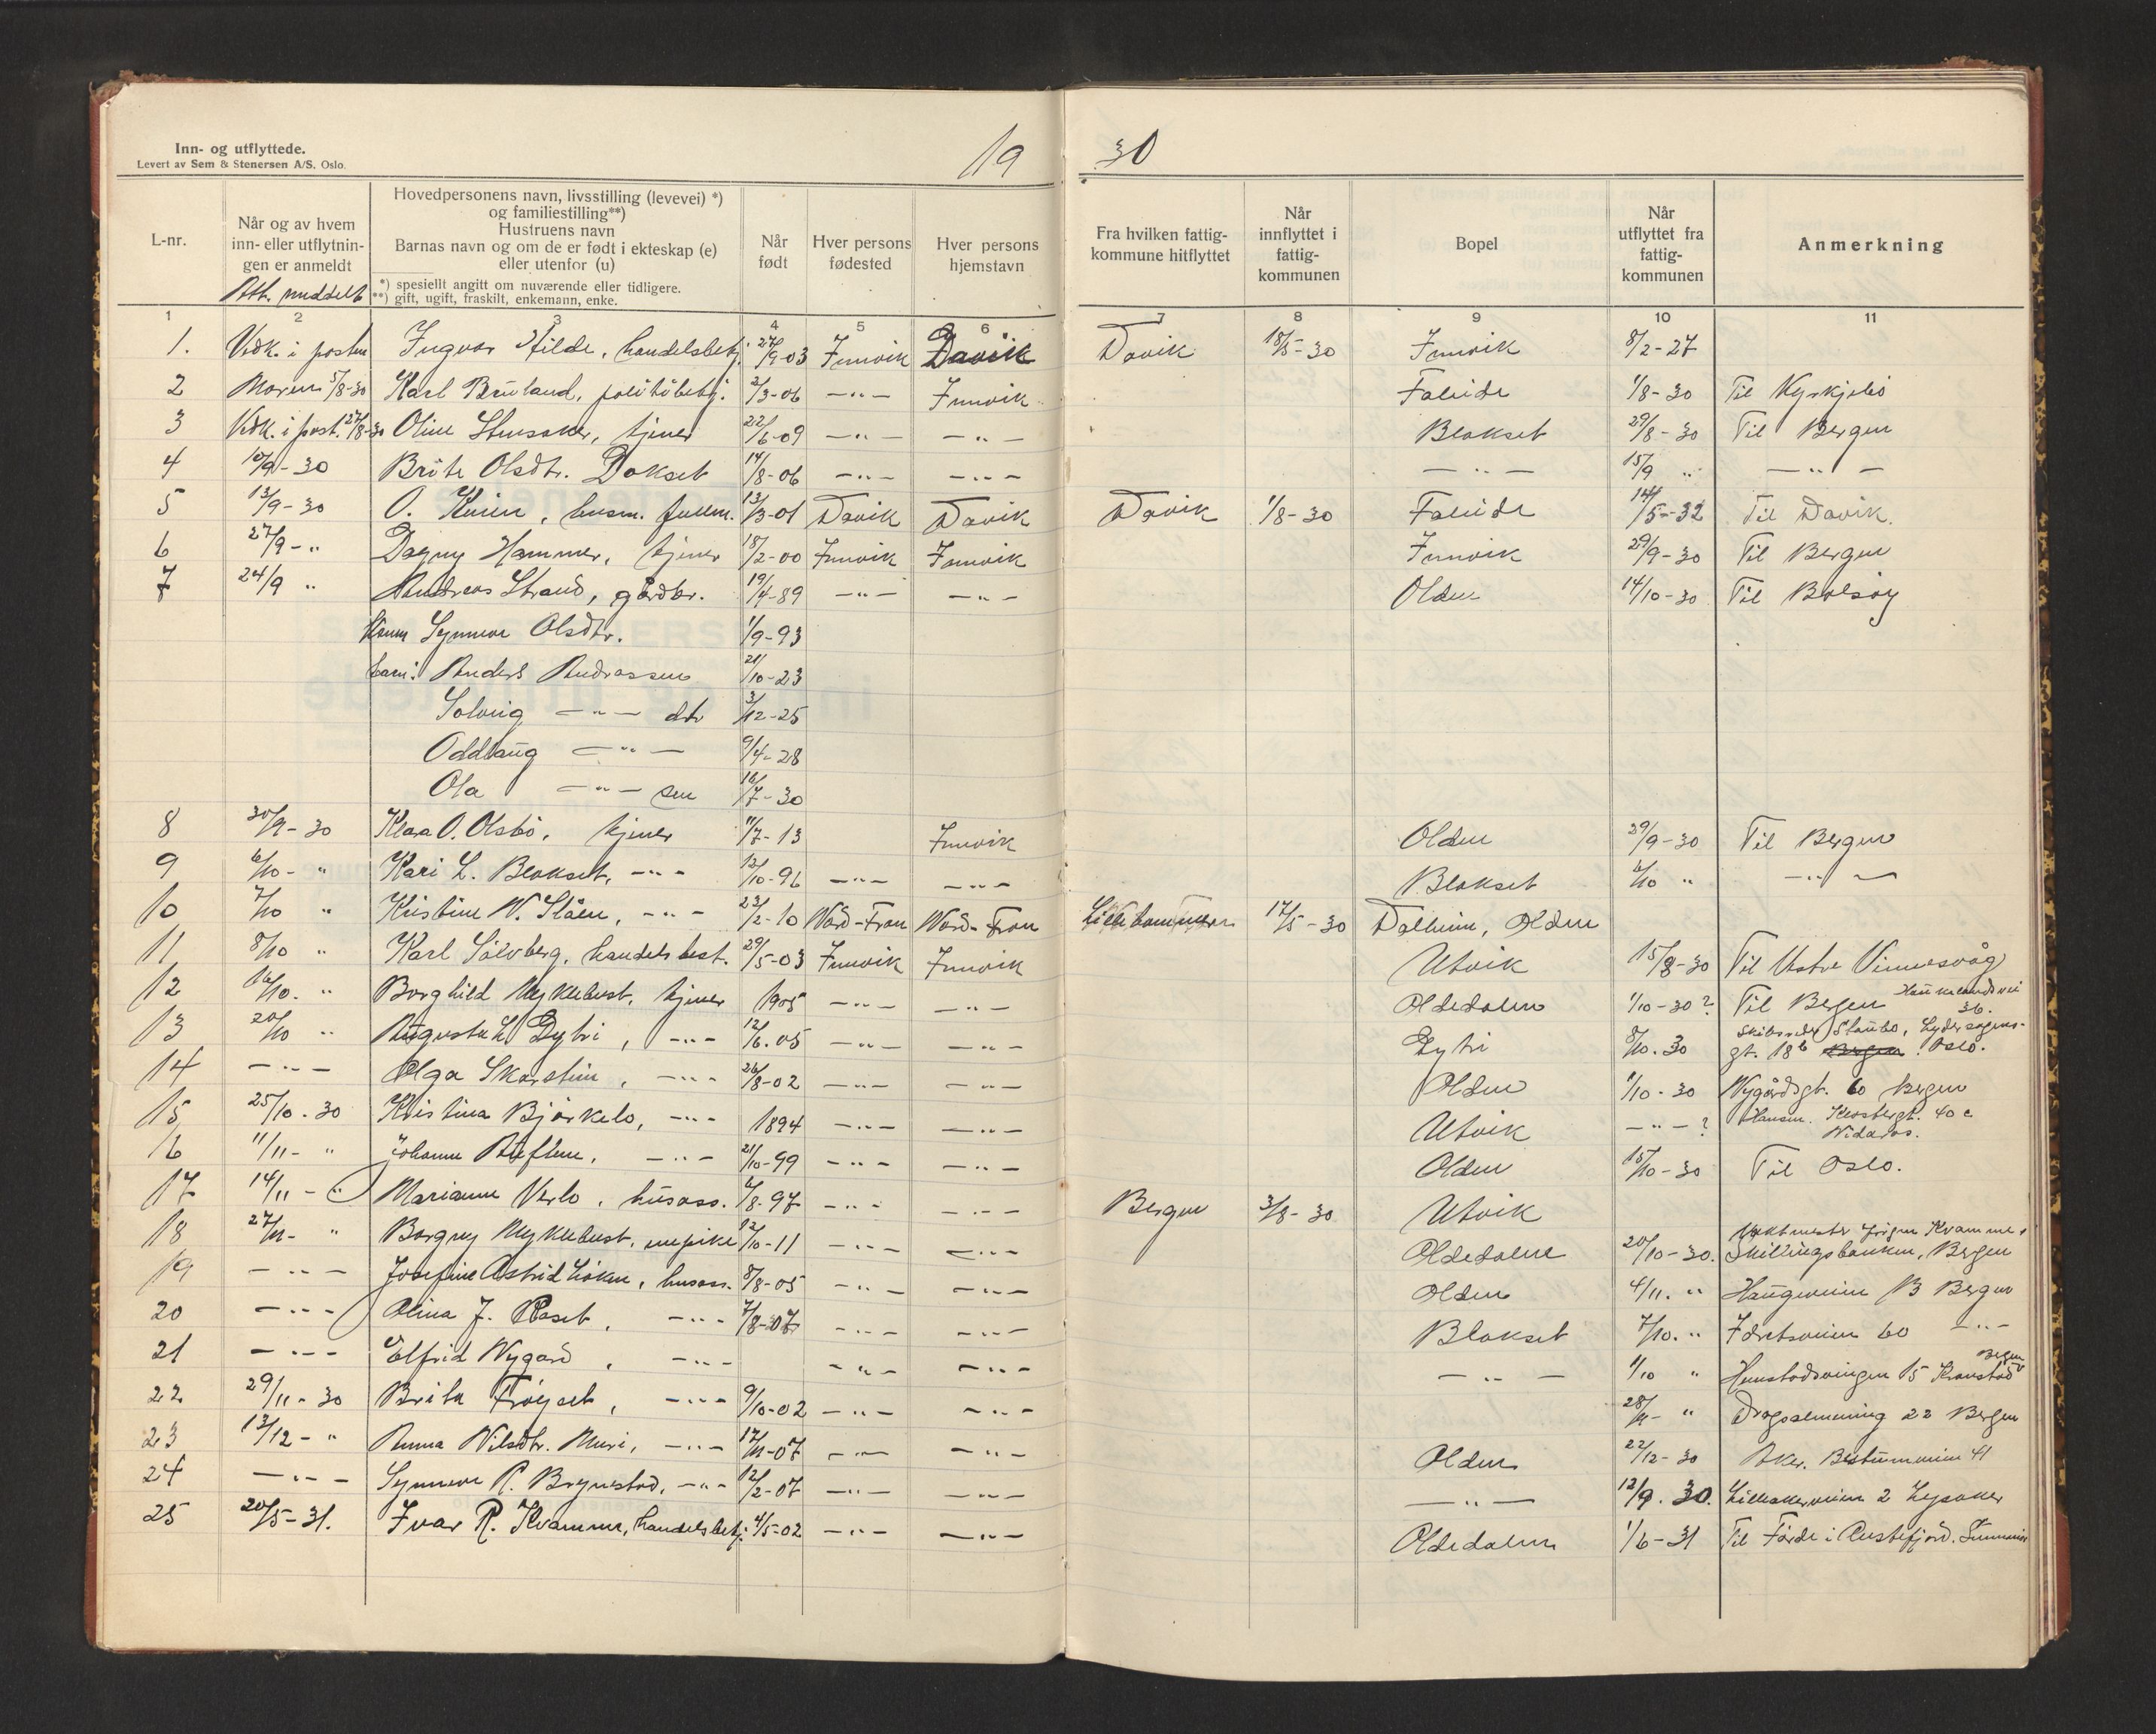 Inn- og utflyttede.
Levert av Sem & Stenersen A/S. Oslo.
19 30
L-nr.
Når og av hvem inn- eller utflytningen er anmeldt
Hovedpersonens navn, livsstilling (levevei) *) og familiestilling**)
Hustruens navn
Barnas navn og om de er født i ekteskap (e) eller utenfor (u)
*) spesiellt angitt om nuværende eller tidligere.
**) gift, ugift, fraskilt, enkemann, enke.
Når født
Hver persons fødested
Hver persons hjemstavn
Fra hvilken fattigkommune hitflyttet
Når innflyttet i fattigkommunen
Bopel
Når utflyttet fra fattigkommunen
Anmerkning
1 2 3 4 5 6 7 8 9 10 11
1. Vedk. i posten Ingvar Hilde, handelsbetj. 27/9-03 Innvik Davik Davik 18/5-30 Innvik 8/2-27
2 Moren 5/8-30 Karl Bruland, politibetj. 2/3-06 -"- Innvik Faleide 1/8-30 Til Kyrkjebö
3 Vedk. i post. 27/8-30 Oline Stensaker, tjener 22/6-09 -"- -"- Blakset 29/8-30 Til Bergen
4 10/9-30 Brite Olsdtr. Dokset 14/8-06 -"- -"- -"- 15/9 " -"-
5 13/9-30 O. Husm. fullm. 13/3-01 Davik Davik Davik 1/8-30 Faleide 14/5-32 Til Davik.
6 27/9-" Dagny Hammer, tjener 18/2-00 Innvik Innvik Innvik 29/9-30 Til Bergen
7 24/9 " Andreas Strand, gårdbr. 19/4-89 -"- -"- Olden 14/10-30 Til Bolsöy
Kona Synneve Olsdtr. 1/9-93
barn: Anders Andreassen 21/10-23
Solveig -"- dtr 3/12-25
Oddlaug -"- 9/4-28
Ola -"- sen 16/7-30
8 30/9-30 Klara O. Olsbö, tjener 11/7-13 Innvik Olden 29/9-30 Til Bergen
9 6/10-" Kari L. Blakset, -"- 12/10-96 -"- -"- Blakset 6/10 " -"-
10 7/10 " Kristine N. Slåen, -"- 23/2-10 Nord-Fron Nord-Fron Lillehammer 17/5-30 Dalheim, Olden
11 8/10 " Karl Sölvberg, handelsbest. 29/5-03 Innvik Innvik Utvik 15/8-30 Til Ustre Vinnesvåg
12 16/10. " Borghild Myklebust, tjener 1905 -"- -"- Oldedalen 1/10-30? Til Bergen Haukelandsvei 36.
13 20/10 " Augusta L. Dytri, -"- 12/6.05 -"- -"- Dytri 8/10.30 Skibsreder Staubo, Lydersagens-
gt. 18b Bergen! Oslo.
14 -"- Olga Skarstein, -"- 26/8-02 -"- -"- Olden 1/10-30 Nygårdsgt. 60 Bergen
15 25/10.30 Kristina Björkelo, -"- 1894 -"- -"- Utvik -"-? Hansen. 40c
Nidaros.
16 11/11-" Johanne Auflem, -"- 21/10-99 -"- -"- Olden 15/10-30 Til Oslo.
17 14/11-" Marianne Verlo, husass. 6/8-97 -"- -"- Bergen 3/8-30 Utvik
18 27/11-" Borgny Myklebust, 12/10-11 -"- -"- Oldedalen 20/10-30. Vaktmester Jörgen Kvamme,
Skillingsbanken, Bergen
19 -"- Josefine Astrid Löken, husass. 8/8-05 -"- -"- Olden 4/11. " Haugeveien 13 Bergen
20 -"- Olina J. Raset, -"- 7/8-07 -"- -"- Blakset 7/10. " Idretsveien 60 -"-
21 -"- Elfrid Nygard, -"- -"- -"- -"- 1/10 " 15 Kronstad Bergen
22 29/11-30 Brita Tröyset, -"- 9/10-02 -"- -"- 28/11-" Dragealmening 22 Bergen
23 13/12-" Anna Nilsdtr. Muri, -"- 17/11-07 -"- -"- Olden 22/12-30 Aker. Bestumveien 41
24 -"- Synneve R. Brynestad, -"- 12/2-07 -"- -"- -"- 12/9.30. Lilleakerveien 2 Lysaker
25 20/5-31. Ivar R. Kvamme, handelsbetj. 4/5-02 -"- -"- Oldedalen 1/6-31 Til Förde i Austefjord. Sunnmöre